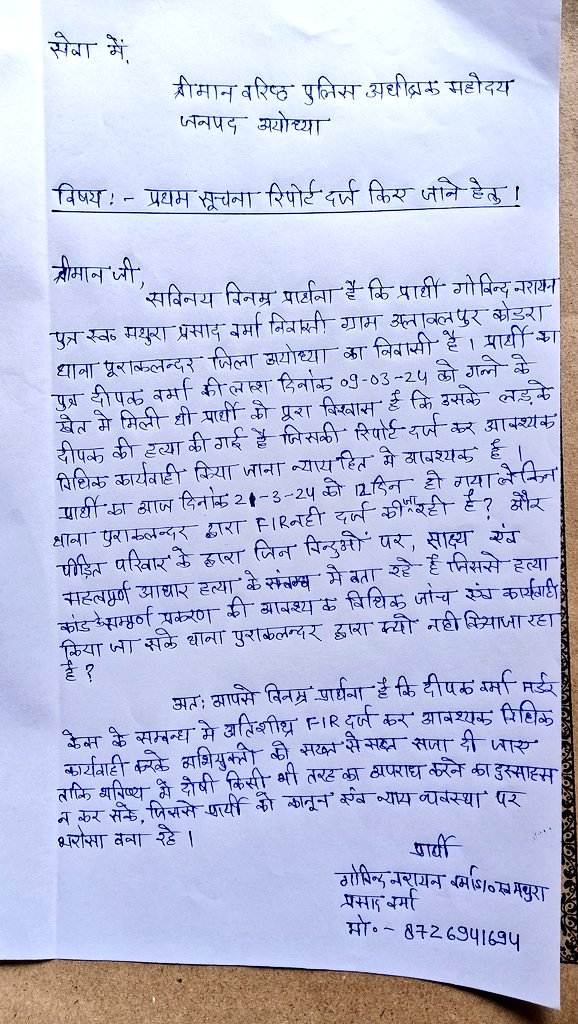 सेवा में,
श्रीमान वरिष्ठ पुलिस अधीक्षक महोदय
जनपद अयोध्या
विषय :- प्रथम सूचना रिपोर्ट दर्ज किए जाने हेतु ।
श्रीमान जी,
सविनय विनम्र प्रार्थना है कि प्रार्थी गोविन्द नरायन
पुत्र स्व० मथुरा प्रसाद वर्मा निवासी ग्राम अलावलपुर कोडरा
थाना पूराकलन्दर जिला अयोध्या का निवासी है । प्रार्थी का
पुत्र दीपक वर्मा की लाश दिनांक 09-03-24 को गन्ने के
खेत मे मिली थी प्रार्थी को पूरा विश्वास है कि उसके लड़के
दीपक की हत्या की गई है जिसकी रिपोर्ट दर्ज कर आवश्यक
विधिक कार्यवाही किया जाना न्यायहित मे आवश्यक है ।
प्रार्थी का आज दिनांक 21-3-24 को 12 दिन हो गया लेकिन
थाना पुराकलन्दर द्वारा FIR नही दर्ज की जा रही है ? और
पीड़ित परिवार के द्वारा जिन बिन्दुओं पर, साक्ष्य एंव
महत्वपूर्ण आधार हत्या के संबन्ध मे बता रहे है जिससे हत्या
कांड के सम्पूर्ण प्रकरण की आवश्यक विधिक जांच एंव कार्यवाही
किया जा सके थाना पुराकलन्दर द्वारा क्यो नही किया जा रहा
है ?
अतः आपसे विनम्र प्रार्थना है कि दीपक वर्मा मर्डर
केस के सम्बन्ध मे अतिशीघ्र FIR दर्ज कर आवश्यक विधिक
कार्यवाही करके अभियुक्तो को सख्त से सख्त सजा दी जाए
ताकि भविष्य में दोषी किसी भी तरह का अपराध करने का दुस्साहस
न कर सके, जिससे प्रार्थी को कानून एंव न्याय व्यवस्था पर
भरोसा बना रहे ।
प्रार्थी
गोविन्द नरायन वर्मा S/o स्व मथुरा
प्रसाद वर्मा
मो० - 8726941694